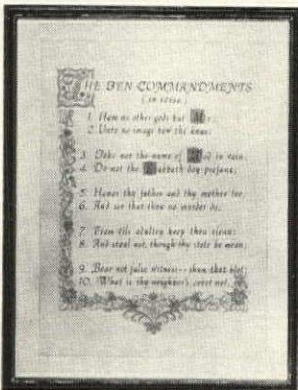 THE TEN COMMANDMENTS
(in verse)
1. Have no other gods but Me;
2. Unto no image bow the knee.
3. Take not the name of God in vain;
4. Do not the Sabbath day profane;
5. Honor thy father and thy mother too;
6. And see that thou no murder do;
7. From vile adultery keep thou clean;
8. And steal not, though thy state be mean;
9. Bear not false witness--shun that blot;
10. What is thy neighbor's covet not.